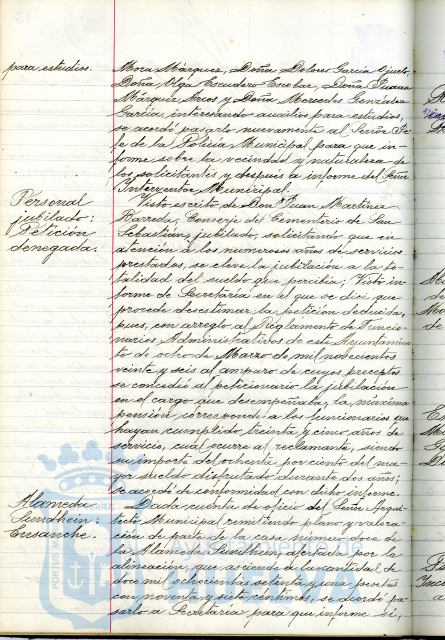 para estudios.
Mora Márquez, Doña Dolores García Ojuelo,
Doña Olga Escudero Escobar, Doña Juana
Márquez Arcos y Doña Mercedes González
García, interesando auxilios para estudios,
se acordó pasarlo nuevamente al Señor Je-
fe de la Policía Municipal para que in-
forme sobre la vecindad y naturaleza de
los solicitantes y después a informe del Señor
Interventor Municipal.
Personal
jubilado:
Petición
denegada.
Visto escrito de Don Juan Martínez
Barreda, Conserje del Cementerio de San
Sebastián, jubilado, solicitando que en
atención a los numerosos años de servicios
prestados, se eleve la jubilación a la to-
talidad del sueldo que percibía; Visto in-
forme de Secretaría en el que se dice que
procede desestimar la petición deducida,
pues, con arreglo al Reglamento de Funcio-
narios Administrativos de este Ayuntamien-
to de ocho de Marzo de mil novecientos
veinte y seis al amparo de cuyos preceptos
se concedió al peticionario la jubilación
en el cargo que desempeñaba, la máxima
pensión corresponde a los funcionarios que
hayan cumplido treinta y cinco años de
servicio, cual ocurre al reclamante, siendo
su importe del ochenta por ciento del ma-
yor sueldo disfrutado durante dos años;
Se acordó de conformidad con dicho informe.
Alameda
Sundheim:
Ensanche.
Dada cuenta de oficio del Señor Arqui-
tecto Municipal remitiendo plano y valora-
ción de parte de la casa número doce de
la Alameda Sundheim, afectada por la
alineación, que asciende a la cantidad de
doce mil ochocientas setenta y una pesetas
con noventa y siete céntimos, se acordó pa-
sarlo a Secretaría para que informe si,